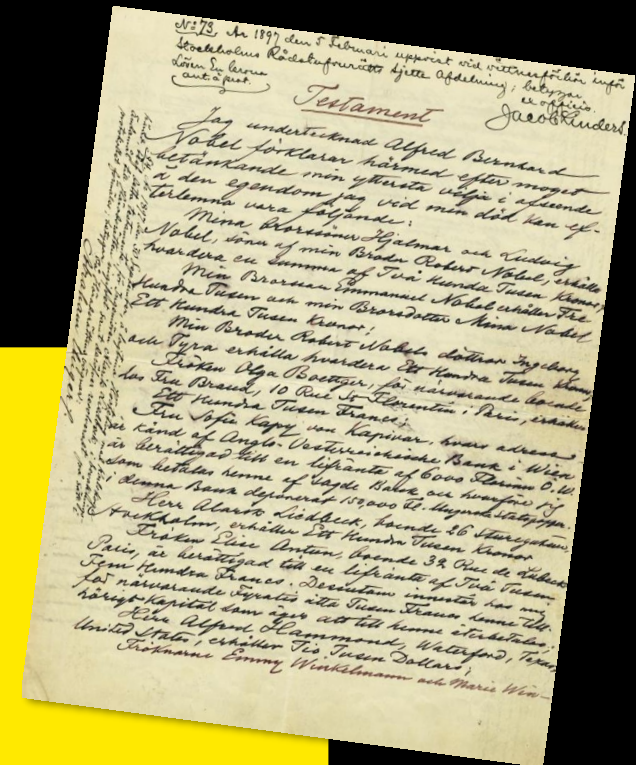 No 73. År 1897 den 5 Februari uppvist vid vittnesförhör inför
Stockholms Rådstufvurätts sjette Afdelning; betygar
Lösen En krona
ex officio.
Jacob Linders
Testament
Jag undertecknad Alfred Bernhard
Nobel förklarar härmed efter moget
betänkande min yttersta vilja i afseende
å den egendom jag vid min död kan ef-
terlemna vara följande:
Mina Brorsöner Hjalmar och Ludvig
Nobel, söner af min Broder Robert Nobel, erhålla
hvardera en summa af Två Hundra Tusen Kronor;
Min Brorson Emmanuel Nobel erhåller Tre
Hundra Tusen och min Brorsdotter Mina Nobel
Ett Hundra Tusen Kronor;
Min Broder Robert Nobels döttrar Ingeborg
och Tyra erhålla hvardera Ett Hundra Tusen Kronor;
Fröken Olga Boettger, för närvarande boende
hos Fru Brand, 10 Rue St Florentin i Paris, erhåller
Ett Hundra Tusen Francs;
Fru Sofie Kapy von Kapivar, hvars adress
är känd af Anglo-Oesterreichische Bank i Wien
är berättigad till en lifränta af 6000 Florins Ö.W.
som betalas henne af sagde Bank och hvarföre jag
i denna Bank deponerat 150,000 Fl. i Ungerska statspapper.
Herr Alarik Liedbeck, boende 26 Sturegatan,
Stockholm, erhåller Ett Hundra Tusen Kronor
Fröken Elise Antun, boende 32 Rue de Lubeck
Paris, är berättigad till en lifränta af Två Tusen
Fem Hundra Francs. Dessutom innestår hos mig
för närvarande Fyratio åtta Tusen Francs henne till-
hörigt Kapital som äger att till henne återbetalas;
Herr Alfred Hammond, Waterford, Texas,
United States, erhåller Tio Tusen Dollars;
Fröknarne Emmy Winkelmann och Marie Win-